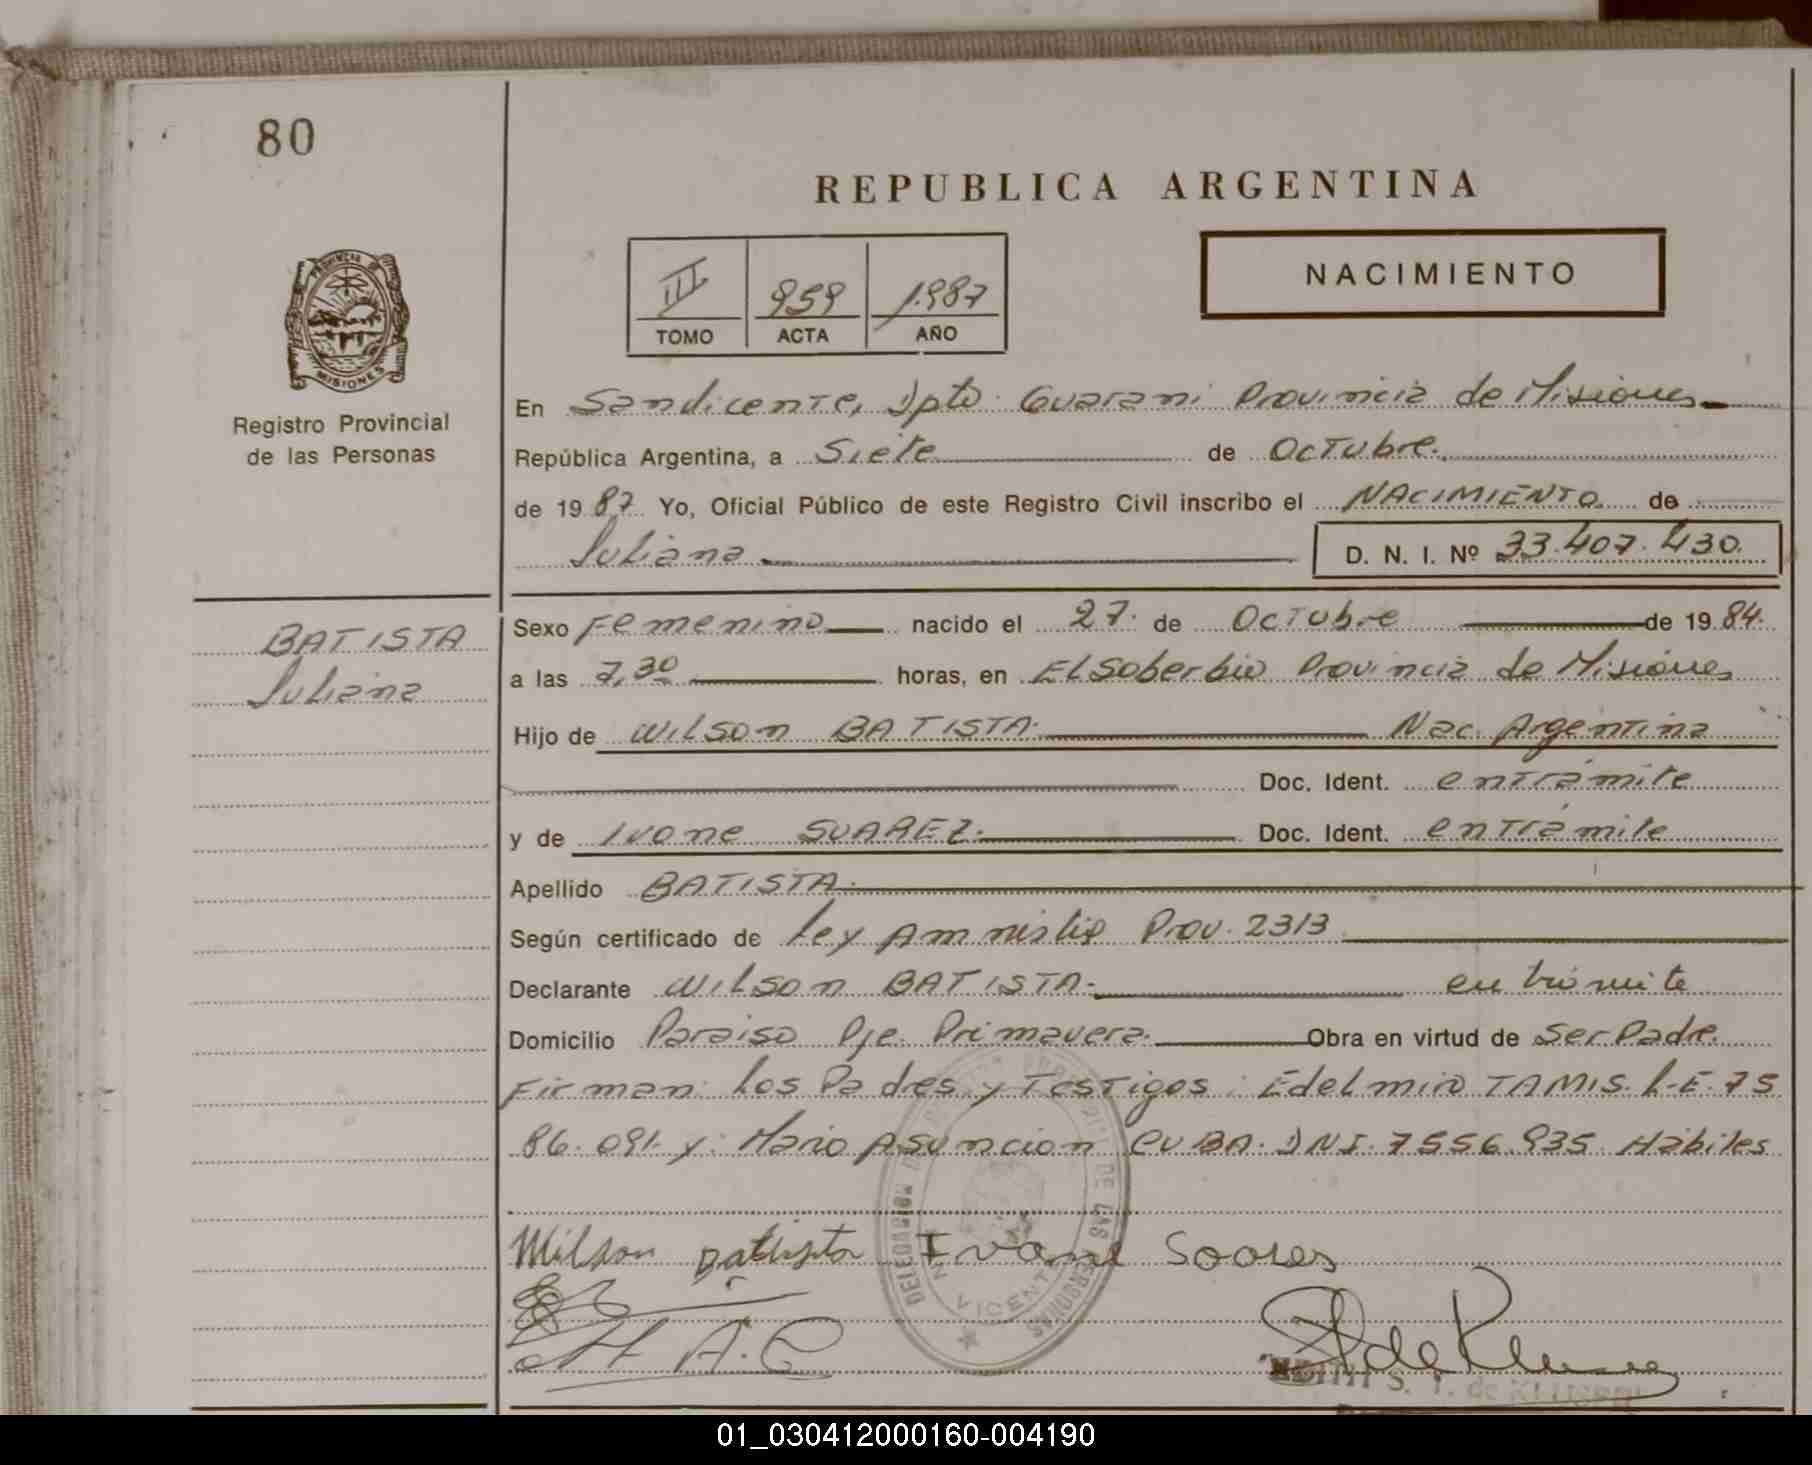 80
REPUBLICA ARGENTINA
PROVINCIA DE
MISIONES
Registro Provincial
de las Personas
III 959 1.987
TOMO ACTA AÑO
NACIMIENTO
En Sanvicente, Dpto Guarani Provincia de Misiones
República Argentina, a Siete de Octubre.
de 1987 Yo, Oficial Público de este Registro Civil inscribo el NACIMIENTO de
Juliana D. N. I. Nº 33.407.430.
BATISTA
Juliana
Sexo Femenino nacido el 27. de Octubre de 1984.
a las 7,30 horas, en El Soberbio Provincia de Misiones
Hijo de WILSON BATISTA. Nac. Argentina
Doc. Ident. entrámite
y de Ivone SUAREZ. Doc. Ident. entrámite
Apellido BATISTA.
Según certificado de Ley Amnistia Prov. 2313
Declarante WILSON BATISTA. en trámite
Domicilio Paraiso Pje. Primavera. Obra en virtud de Ser Padre.
Firman: Los Padres y Testigos: Edelmiro TAMIS. L.E. 75
86.091. y: Mario Asuncion CUBA. DNI. 7556.935. Hábiles
Wilson Batista Ivone Soares
M A.C
DELEGACION DE LAS PERSONAS
VICENTE
S. T. de
01_030412000160-004190